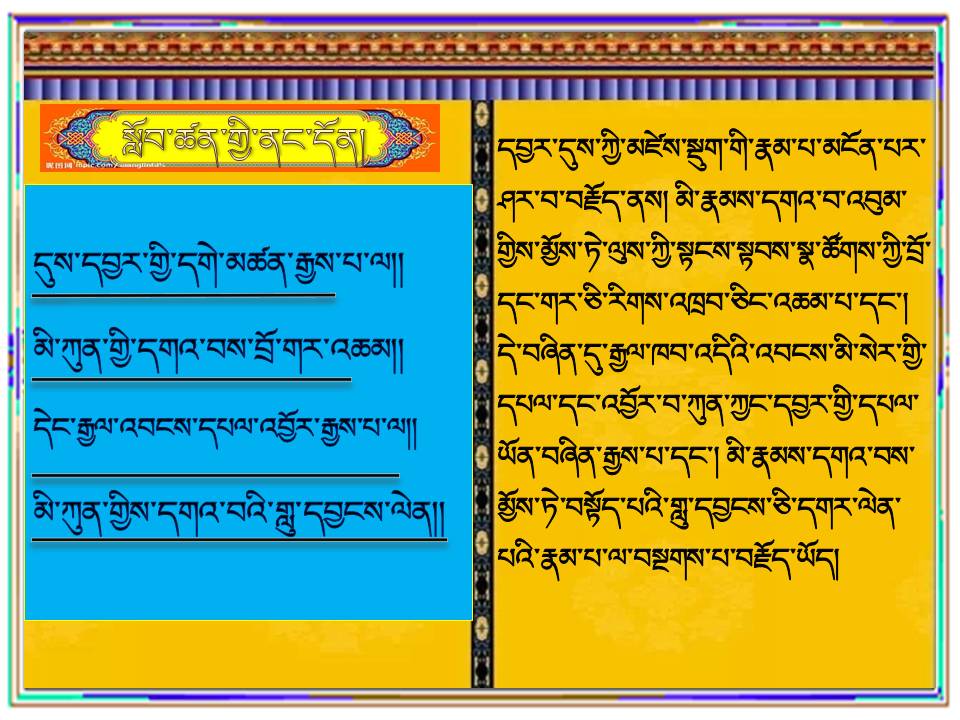 སློབ་ཚན་གྱི་ནང་དོན།
དུས་དབྱར་གྱི་དགེ་མཚན་རྒྱས་པ་ལ།།
མི་ཀུན་གྱི་དགའ་བས་བྲོ་གར་འཆམ།།
དེང་རྒྱལ་འབངས་དཔལ་འབྱོར་རྒྱས་པ་ལ།།
མི་ཀུན་གྱིས་དགའ་བའི་གླུ་དབྱངས་ལེན།།
དབྱར་དུས་ཀྱི་མཛེས་སྡུག་གི་རྣམ་པ་མངོན་པར་
ཤར་བ་བརྗོད་ནས། མི་རྣམས་དགའ་བ་འབུམ་
གྱིས་མྱོས་ཏེ་ལུས་ཀྱི་སྟངས་སྟབས་སྣ་ཚོགས་ཀྱི་བྲོ་
དང་གར་ཅི་རིགས་འཁྲབ་ཅིང་འཆམ་པ་དང་།
དེ་བཞིན་དུ་རྒྱལ་ཁབ་འདིའི་འབངས་མི་སེར་གྱི་
དཔལ་དང་འབྱོར་བ་ཀུན་ཀྱང་དབྱར་གྱི་དཔལ་
ཡོན་བཞིན་རྒྱས་པ་དང་། མི་རྣམས་དགའ་བས་
མྱོས་ཏེ་བསྟོད་པའི་གླུ་དབྱངས་ཅི་དགར་ལེན་
པའི་རྣམ་པ་ལ་བསྔགས་པ་བརྗོད་ཡོད།